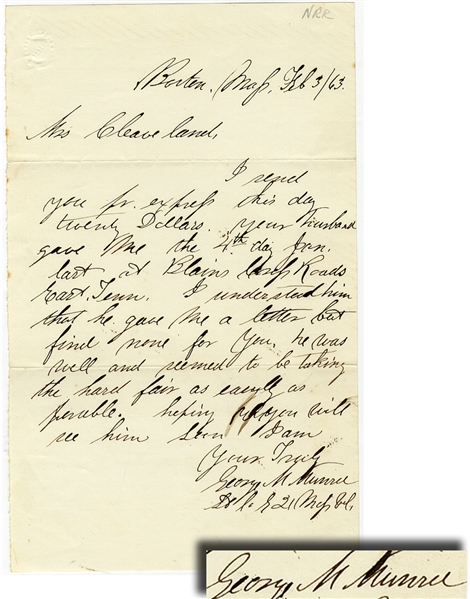 NRR
Boston, Mass, Feb 3/63.
Mrs Cleaveland,
I send
you pr. express this day
twenty Dollars. your husband
gave me the 4th day Jan.
last at Blains Cross Roads
East, Tenn. I understood him
that he gave me a letter but
find none for you, he was
well and seemed to be taking
the hard fair as easily as
possable. hoping you will
see him soon I am
Yours Truly
George M Munroe
Co. E 21 Mass Vol,
George M Munroe